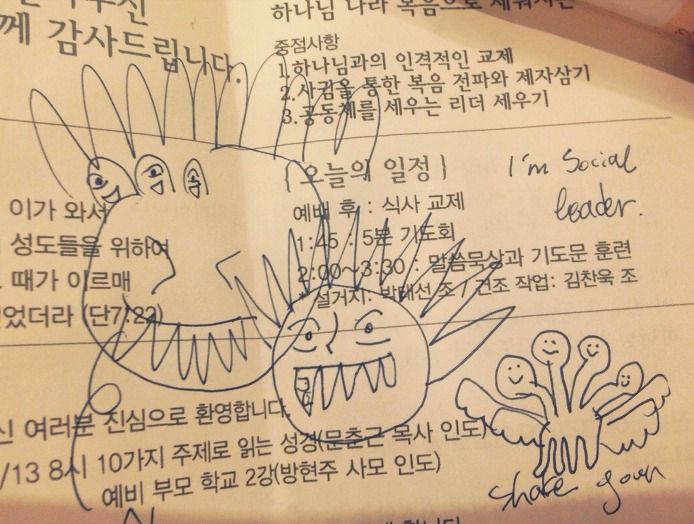 께 감사드립니다.
하나님 나라 복음으로
중점사항
1.하나님과의 인격적인 교제
2.사귐을 통한 복음 전파와 제자삼기
3.공동체를 세우는 리더 세우기
이가 와서
성도들을 위하여
때가 이르매
었더라 (단7:22)
{ 오늘의 일정 }
예배 후 : 식사 교제
1:45 : 5분 기도회
2:00~3:30 : 말씀묵상과 기도문 훈련
* 설거지: 박태선 조 / 건조 작업: 김찬욱 조
I'm Social
leader.
신 여러분 진심으로 환영합니다.
/13 8시 10가지 주제로 읽는 성경(문춘근 목사 인도)
예비 부모 학교 2강(방현주 사모 인도)
Share